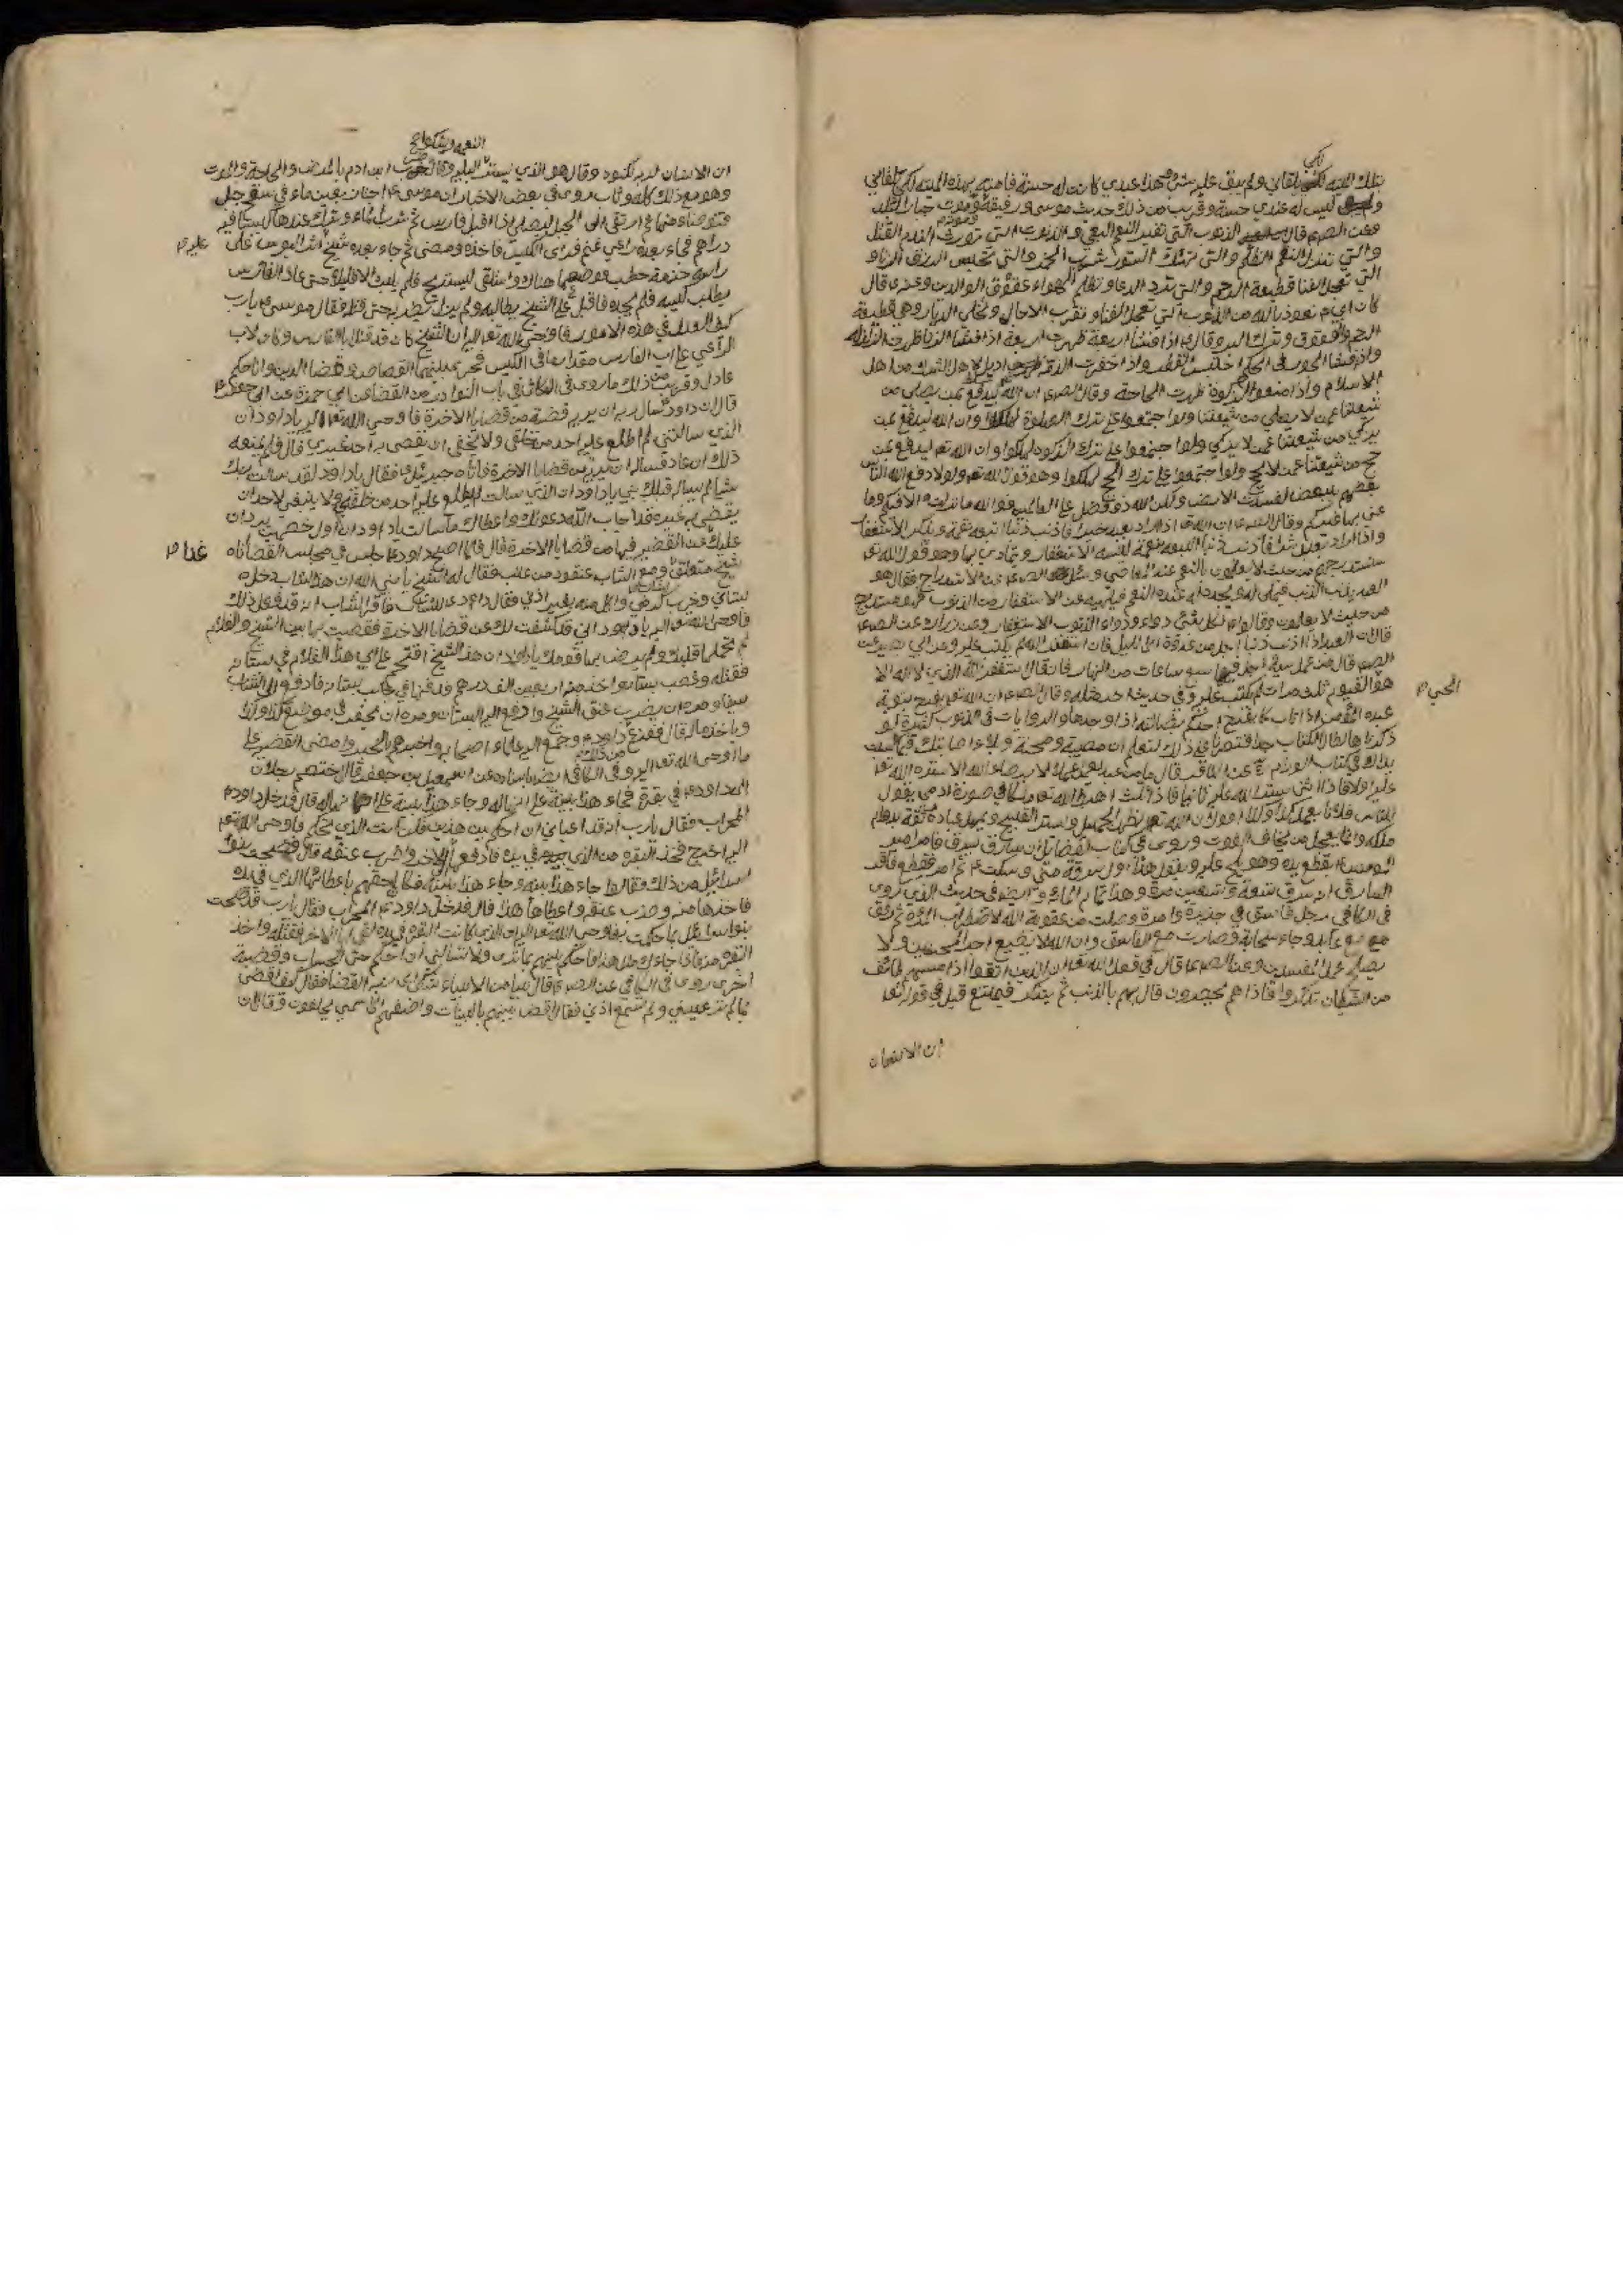 بتلك الميتة لكي يلقاني ولم يبق عليه شيء وهذا عبدي كانت له حسنة فامتته بهذه الميتة لكي يلقاني
وليس له عندي حسنة وقريب من ذلك حديث موسى ورفيقه وموت جبار البلد
فعن الصم قال الذنوب التي تغير النعم البغي والذنوب التي تورث الندم القتل
والتي تنزل النقم الظلم والتي تهتك الستور شرب الخمر والتي تحبس الرزق الزنا و
التي تعجل الفنا قطيعة الرحم والتي ترد الدعا وتظلم الهواء عقوق الوالدين وعنه ع قال
كان ابي ع نعوذ بالله من الذنوب التي تعجل الفنا وتقرب الاجال وتخلي الديار وهي قطيعة
الرحم والعقوق وترك البر وقال ع اذا فشا اربعة ظهرت اربعة اذا فشا الزنا ظهرت الزلزلة
واذا فشا الجور في الحكم احتبس القطر واذا خفرت الذمة اديل لاهل الشرك من اهل
الاسلام واذا منعوا الزكوة ظهرت الحاجة وقال الصم ع ان الله ليدفع بمن يصلي من
شيعتنا عمن لا يصلي من شيعتنا ولو اجتمعوا على ترك الصلوة لهلكوا وان الله ليدفع بمن
يزكي من شيعتنا عمن لا يزكي ولو اجتمعوا على ترك الزكوة لهلكوا وان الله تع ليدفع بمن
حج من شيعتنا عمن لا يحج ولو اجتمعوا على ترك الحج لهلكوا وهو قول الله تع ولولا دفع الله الناس
بعضهم ببعض لفسدت الارض ولكن الله ذو فضل على العالمين فوالله ما نزلت الا فيكم وما
عنى بها غيركم وقال الصم ع ان الله اذا اراد بعبد خيرا فاذنب ذنبا اتبعه بنقمة ويذكره الاستغفار
واذا اراد بعبد شرا فاذنب ذنبا اتبعه بنعمة لينسيه الاستغفار ويتمادى بها وهو قول الله تع
سنستدرجهم من حيث لا يعلمون بالنعم عند المعاصي وسئل الصم ع عن الاستدراج فقال هو
العبد يذنب الذنب فيملى له ويجدد له عنده النعم فيلهيه عن الاستغفار من الذنوب فهو مستدرج
من حيث لا يعلم وقال ع لكل شيء دواء ودواء الذنوب الاستغفار وعن زرارة عن الصم ع
قال ان العبد اذا اذنب ذنبا اجل من غدوة الى الليل فان استغفر الله لم يكتب عليه وعن ابي بصير عن
الصم ع قال من عمل سيئة اجل فيها سبع ساعات من النهار فان قال استغفر الله الذي لا اله الا
هو القيوم ثلث مرات لم تكتب عليه وفي حديث وقال الصم ع ان الله تع يفرح بتوبة
الحي م
عبده المؤمن اذا تاب كما يفرح احدكم بضالته اذا وجدها والروايات في الذنوب كثيرة لو
ذكرناها لطال الكتاب جدا فتصرنا في ذلك لتعلم ان مصيبة ومحنة وبلاء اصابتك
عليه اولا فاذا ثنى ستر الله عليه ثانيا فاذا ثلث اهبط الله تع ملكا في صورة ادمي يقول
للناس فلان يعمل كذا وكذا
ملكه وانما يعجل من يخاف الفوت وروي في كتاب القضايا ان سارق سرق فامر امير
المؤمنين ع بقطع يده وهو يلح عليه ويقول هذا اول سرقة مني وسكت ع ثم امر فقطع فاقر
السارق انه سرق تسعة وتسعين سرقة وهذا تمام المائة
في الكافي رجل فاسق في جزيرة وامرأة وجلت من عقوبة الله لاضطراب المرأة ثم رفق
وجاء سحابة وصارت مع الفاسق وان الله لا يضيع اجر المحسنين ولا
يصلح عمل المفسدين وعن الصم ع قال في قول الله تع ان الذين اتقوا اذا مسهم طائف
من الشيطان تذكروا فاذا هم مبصرون قال يهم بالذنب ثم يتذكر فيمتنع قيل في قوله تع
ان الانسان
النعمة ويشكوا
ان الانسان لربه لكنود وقال هو الذي ابن ادم بالمرض والحاجة والموت
وهو مع ذلك كله وثاب روي في بعض الاخبار ان موسى ع اجتاز بعين ماء في سفح جبل
فتوضاء منها ثم ارتقى الى الجبل ليصلي اذا اقبل فارس ثم شرب الماء وترك عندها كيسا فيه
دراهم فجاء بعده راعي غنم فراى الكيس فاخذه ومضى ثم جاء بعده شيخ اثر البؤس على
عليه م
راسه حزمة حطب فوضعها هناك واستلقى ليستريح فلم يلبث الا قليلا حتى عاد الفارس
يطلب كيسه فلم يجده فاقبل على الشيخ يطالبه ولم يزل يضربه حتى قتله فقال موسى ع يا رب
كيف العدل في هذه الامور فاوحى الله تع اليه ان الشيخ كان قد قتل ابا الفارس وكان لاب
الراعي على اب الفارس مقدار ما في الكيس فجرى بينهما القصاص وقضا الدين وانا حكم
عادل وقريب من ذلك ما روي في الكافي في باب النوادر من القضا عن ابي حمزة عن ابي جعفر ع
قال ان داود ع سأل ربه ان يريه قضية من قضايا الاخرة فاوحى الله تع اليه يا داود ان
الذي سالتني لم اطلع عليه احد من خلقي ولا ينبغي ان يقضي به احد غيري قال فلم يمنعه
ذلك ان عاد فسأله ان يريه من قضايا الاخرة فاتاه جبرئيل ع فقال يا داود لقد سالت ربك
شيا لم يساله قبلك نبي يا داود ان الذي سالت لم يطلع عليه احد من خلقه ولا ينبغي لاحد ان
يقضي به غيره فقد اجاب الله دعوتك واعطاك ما سالت يا داود ان اول خصمين يردان
عليك غدا القضية فيهما من قضايا الاخرة قال فلما اصبح داود ع جلس في مجلس القضا اتاه
غدا م
شيخ متعلق بشاب ومع الشاب عنقود من عنب فقال له الشيخ يا نبي الله ان هذا الشاب دخل
بستاني وخرب كرمي واكل منه بغير اذني فقال داود ع للشاب فاقر الشاب انه قد فعل ذلك
فاوحى الله تع اليه يا داود اني قد كشفت لك عن قضايا الاخرة فقضيت بها بين الشيخ والغلام
لم يحتملها قلبك ولم يرض بها قومك يا داود ان هذا الشيخ اقتحم على ابي هذا الغلام في بستانه
فقتله وغصب بستانه واخذ منه اربعين الف درهم فدفنها في جانب بستانه فادفع الى الشاب
سيفا ومره ان يضرب عنق الشيخ وادفع اليه البستان ومره ان يحفر في موضع كذا وكذا
وياخذ ماله قال ففزع داود ع من ذلك وجمع اليه علماء اصحابه واخبرهم الخبر وامضى القضية على
ما اوحى الله تع اليه وفي الكافي ايضا باسناده عن اسمعيل بن جعفر قال اختصم رجلان
الى داود ع في بقرة فجاء هذا ببينة على انها له وجاء هذا ببينة على انها له قال فدخل داود ع
المحراب فقال يا رب انه قد اعياني ان احكم بين هذين فكن انت الذي تحكم فاوحى الله تع
اليه اخرج فخذ البقرة من الذي في يده فادفعها الى الاخر واضرب عنقه قال فضجت بنوا
اسرائيل من ذلك وقالوا جاء هذا ببينة وجاء هذا ببينة وكان احقهم باعطائها الذي في يده
فاخذها منه وضرب عنقه واعطاها هذا قال فدخل داود ع المحراب فقال يا رب قد ضجت
بنوا اسرائيل بما حكمت به فاوحى الله تع اليه ان الذي كانت البقرة في يده لقي ابا الاخر فقتله واخذ
البقرة منه فاذا جاءك مثل هذا فاحكم بينهم بما ترى ولا تسألني ان احكم حتى الحساب وقضية
اخرى روي في الكافي عن الصم ع قال نبيا من الانبياء شكى الى ربه القضا فقال كيف اقضي
بما لم تر عيني ولم تسمع اذني فقال اقض بينهم بالبينات واضفهم الى اسمي يحلفون وقال ان